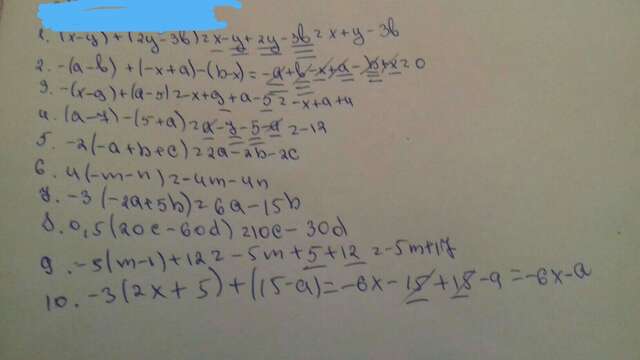 1. (x-y)+(2y-3b)=x-y+2y-3b=x+y-3b
2. -(a-b)+(-x+a)-(b-x)=-a+b-x+a-b+x=0
3. -(x-9)+(a-5)=-x+9+a-5=-x+a+4
4. (a-7)-(5+a)=a-7-5-a=-12
5. -2(-a+b+c)=2a-2b-2c
6. 4(-m-n)=-4m-4n
7. -3(-2a+5b)=6a-15b
8. 0,5(20c-60d)=10c-30d
9. -5(m-1)+12=-5m+5+12=-5m+17
10. -3(2x+5)+(15-a)=-6x-15+15-a=-6x-a